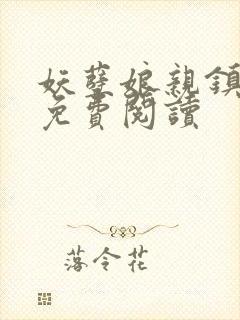 妖孽娘親鎮
免費閱讀
落令花